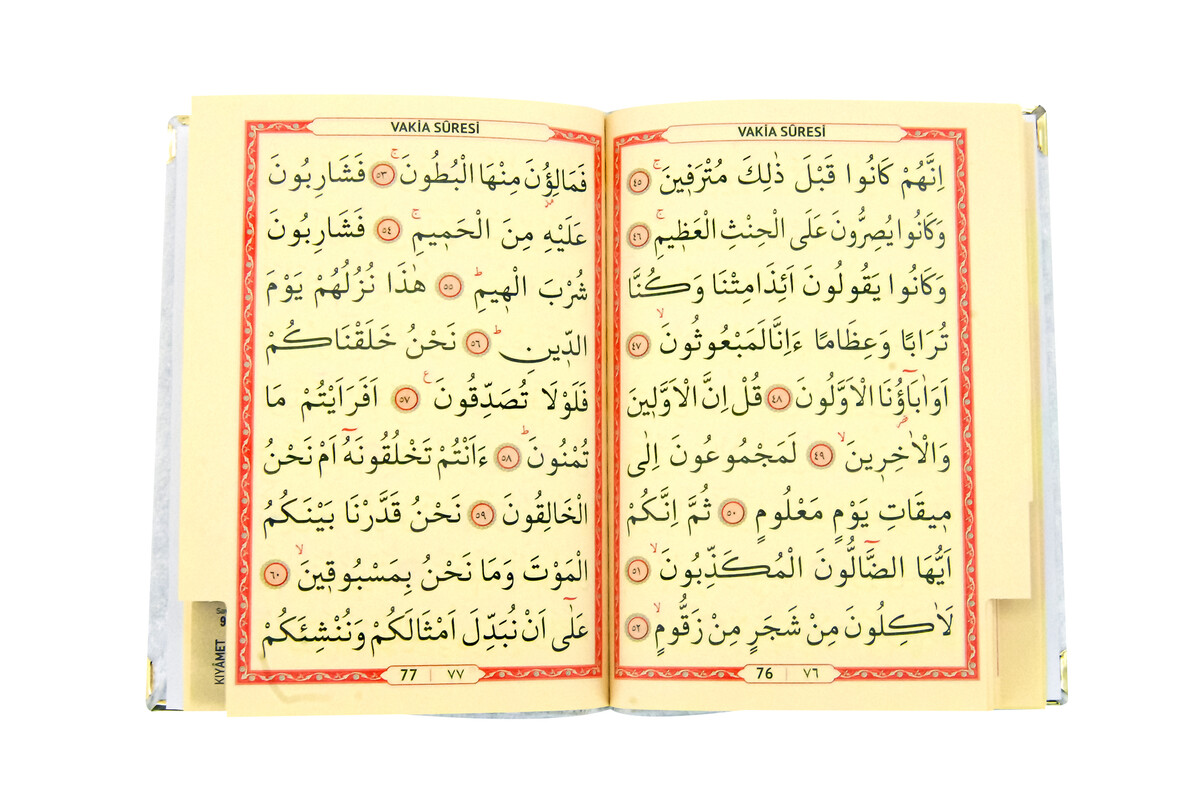 VAKİA SÛRESİ
اِنَّهُمْ كَانُوا قَبْلَ ذٰلِكَ مُتْرَف۪ينَۚ ﴿٤٥﴾
وَكَانُوا يُصِرُّونَ عَلَى الْحِنْثِ الْعَظ۪يمِۚ ﴿٤٦﴾
وَكَانُوا يَقُولُونَ اَئِذَا مِتْنَا وَكُنَّا
تُرَابًا وَعِظَامًا ءَاِنَّا لَمَبْعُوثُونَۙ ﴿٤٧﴾
اَوَاٰبَٓاؤُنَا الْاَوَّلُونَ ﴿٤٨﴾ قُلْ اِنَّ الْاَوَّل۪ينَ
وَالْاٰخِر۪ينَۙ ﴿٤٩﴾ لَمَجْمُوعُونَ اِلٰى
م۪يقَاتِ يَوْمٍ مَعْلُومٍ ﴿٥٠﴾ ثُمَّ اِنَّكُمْ
اَيُّهَا الضَّٓالُّونَ الْمُكَذِّبُونَۙ ﴿٥١﴾
لَاٰكِلُونَ مِنْ شَجَرٍ مِنْ زَقُّومٍۙ ﴿٥٢﴾
76 | ٧٦
VAKİA SÛRESİ
فَمَالِؤُ۫نَ مِنْهَا الْبُطُونَۚ ﴿٥٣﴾ فَشَارِبُونَ
عَلَيْهِ مِنَ الْحَم۪يمِۚ ﴿٥٤﴾ فَشَارِبُونَ
شُرْبَ اله۪يمِۜ ﴿٥٥﴾ هٰذَا نُزُلُهُمْ يَوْمَ
الدّ۪ينِۜ ﴿٥٦﴾ نَحْنُ خَلَقْنَاكُمْ
فَلَوْلَا تُصَدِّقُونَ ﴿٥٧﴾ اَفَرَاَيْتُمْ مَا
تُمْنُونَۜ ﴿٥٨﴾ ءَاَنْتُمْ تَخْلُقُونَهُٓ اَمْ نَحْنُ
الْخَالِقُونَ ﴿٥٩﴾ نَحْنُ قَدَّرْنَا بَيْنَكُمُ
الْمَوْتَ وَمَا نَحْنُ بِمَسْبُوق۪ينَۙ ﴿٦٠﴾
عَلٰٓى اَنْ نُبَدِّلَ اَمْثَالَكُمْ وَنُنْشِئَكُمْ
77 | ٧٧
KIYÂMET